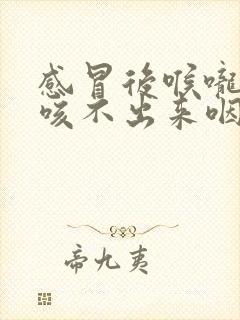 感冒後喉嚨
咳不出来咽
帝九夷